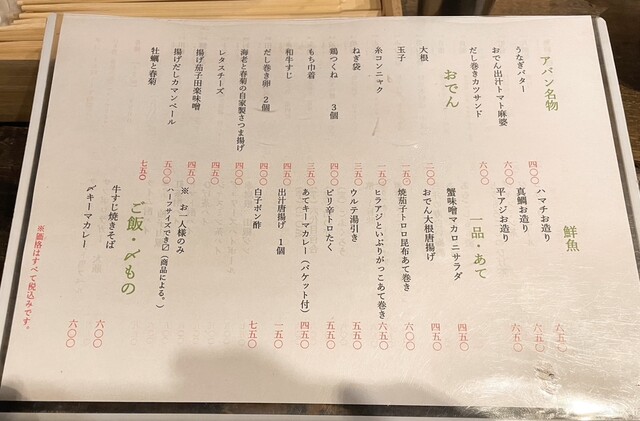 アバン名物
うなぎバター 四〇〇
おでん出汁トマト麻婆 六〇〇
だし巻きカツサンド 六〇〇
おでん
大根 二〇〇
玉子 一五〇
糸コンニャク 一五〇
ねぎ袋 三五〇
鶏つくね 3個 四〇〇
もち巾着 三五〇
和牛すじ 四五〇
だし巻き卵 2個 四〇〇
海老と春菊の自家製さつま揚げ 四〇〇
レタスチーズ 四五〇
揚げ茄子田楽味噌 四五〇
揚げだしカマンベール 五〇〇
牡蠣と春菊 七五〇
鮮魚
ハマチお造り 六五〇
真鯛お造り 六五〇
平アジお造り 六五〇
一品・あて
蟹味噌マカロニサラダ 四五〇
おでん大根唐揚げ 四五〇
焼茄子トロロ昆布あて巻き 六〇〇
ヒラアジといぶりがっこあて巻き 六五〇
ウルテ湯引き 五五〇
ピリ辛トロたく 五五〇
あてキーマカレー(バケット付) 四五〇
出汁唐揚げ 1個 一五〇
白子ポン酢 七五〇
※ お一人様のみ
ハーフサイズでき〼(商品による。)
ご飯・〆もの
牛すじ焼きそば 六〇〇
〆キーマカレー 六〇〇
※価格はすべて税込みです。